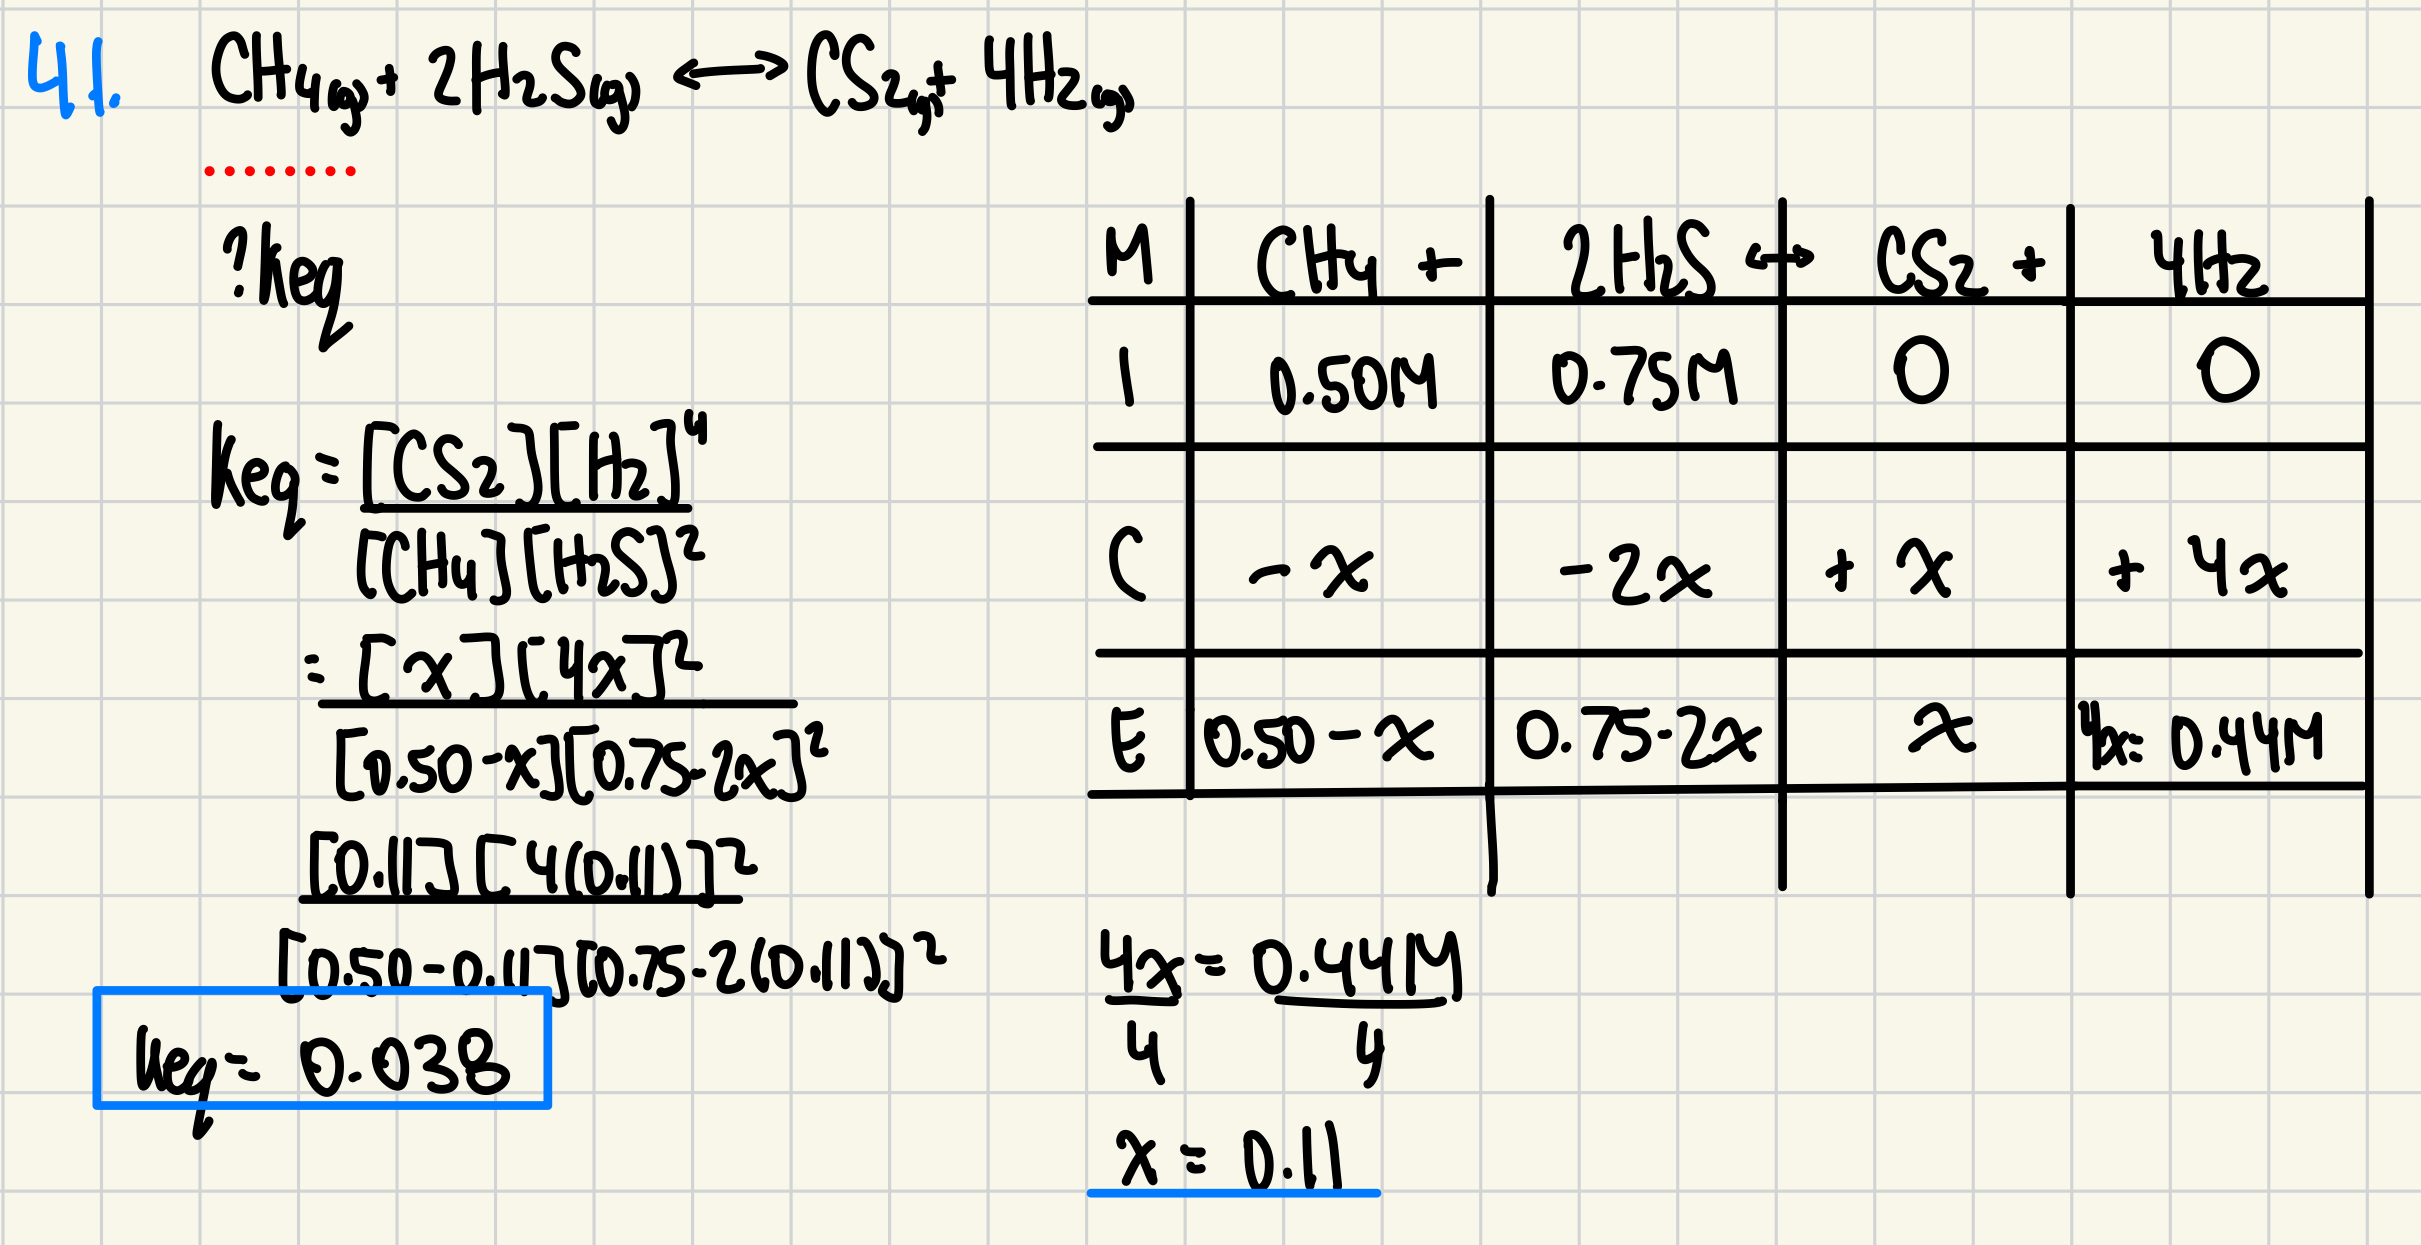 41. CH₄(g) + 2H₂S(g) ⟷ CS₂(g) + 4H₂(g)
? Keq
Keq = [CS₂][H₂]⁴
[CH₄][H₂S]²
= [x][4x]²
[0.50-x][0.75-2x]²
[0.11][4(0.11)]²
[0.50-0.11][0.75-2(0.11)]²
Keq = 0.038
M CH₄ + 2H₂S ⟷ CS₂ + 4H₂
I 0.50M 0.75M 0 0
C -x -2x +x +4x
E 0.50-x 0.75-2x x 4x= 0.44M
4x = 0.44M
4 4
x = 0.11